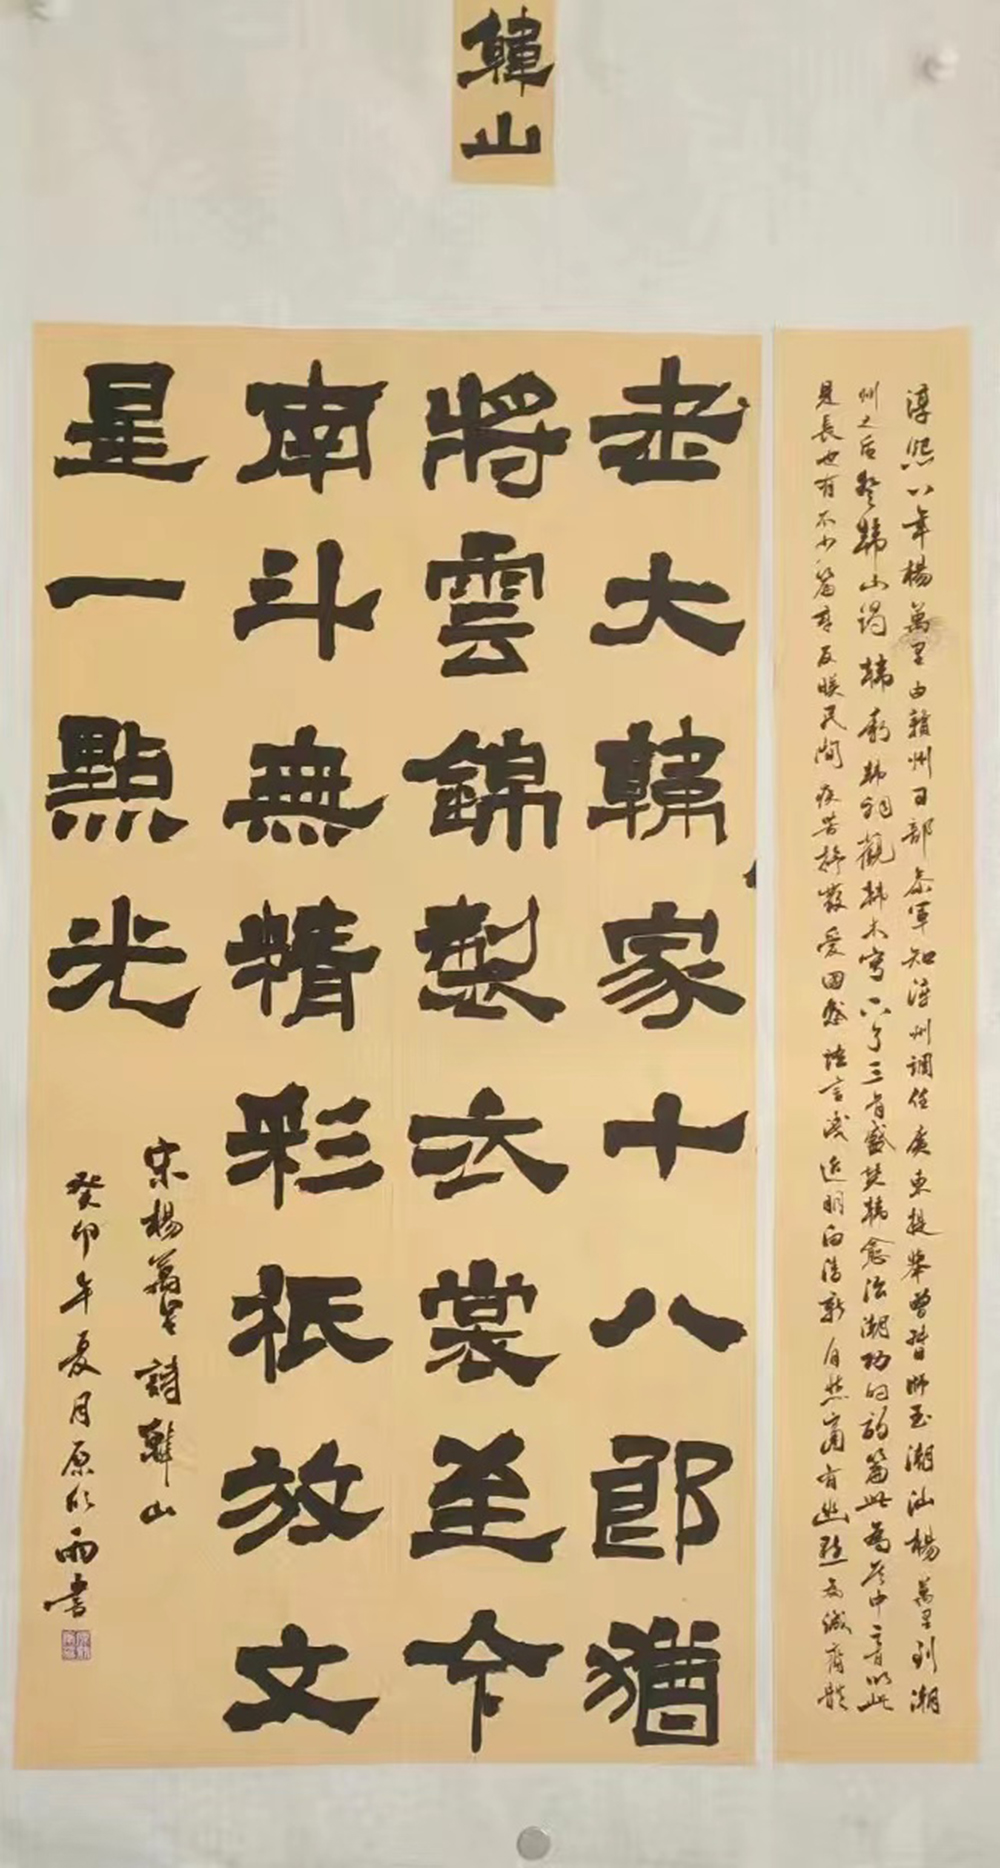 韓山
淳熙八年楊萬里由贛州司部參軍知漳州調任廣東提舉曾督師至潮汕楊萬里到潮
州之后登韩山谒韩廟韩祠觀韩木寫下了三首盛赞韩愈治潮功的诗篇此為其中一首以此
見長也有不少篇章反映民間疾苦抒發愛國感语言浅近明白清新自然富有幽默為誠齋體
老大韓家十八郎猶
將雲錦製衣裳至今
南斗無精彩祇放文
星一點光
宋楊萬里詩韓山
癸卯年夏月原欣雨書